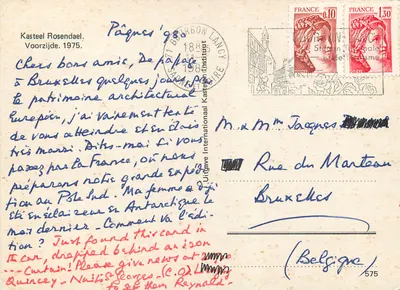 Kasteel Rosendael.
Voorzijde. 1975.
Pâques '80
Chers bons amis, De passage
à Bruxelles quelques jours pour
le patrimoine architectural
Européen, j'ai vainement tenté
de vous atteindre et en étais
très marri. Dites-moi si vous
passez par la France, où nous
préparons notre grande expédi-
tion au Pôle Sud. Ma femme a d'
été en éclaireur en Antarctique le
mois dernier. Comment va l'édi-
tion ? Just found this card in
the car, dropped behind an
Please give news at
Quincey - Nuits St Georges. (C.O.)
to them Reynald-
Uitgave Internationaal Kastelen Instituut
BOURBON LANCY
18H
FRANCE
0,10
FRANCE
1,30
M & Mme Jacques
Rue du Marteau
Bruxelles
(Belgique)
575